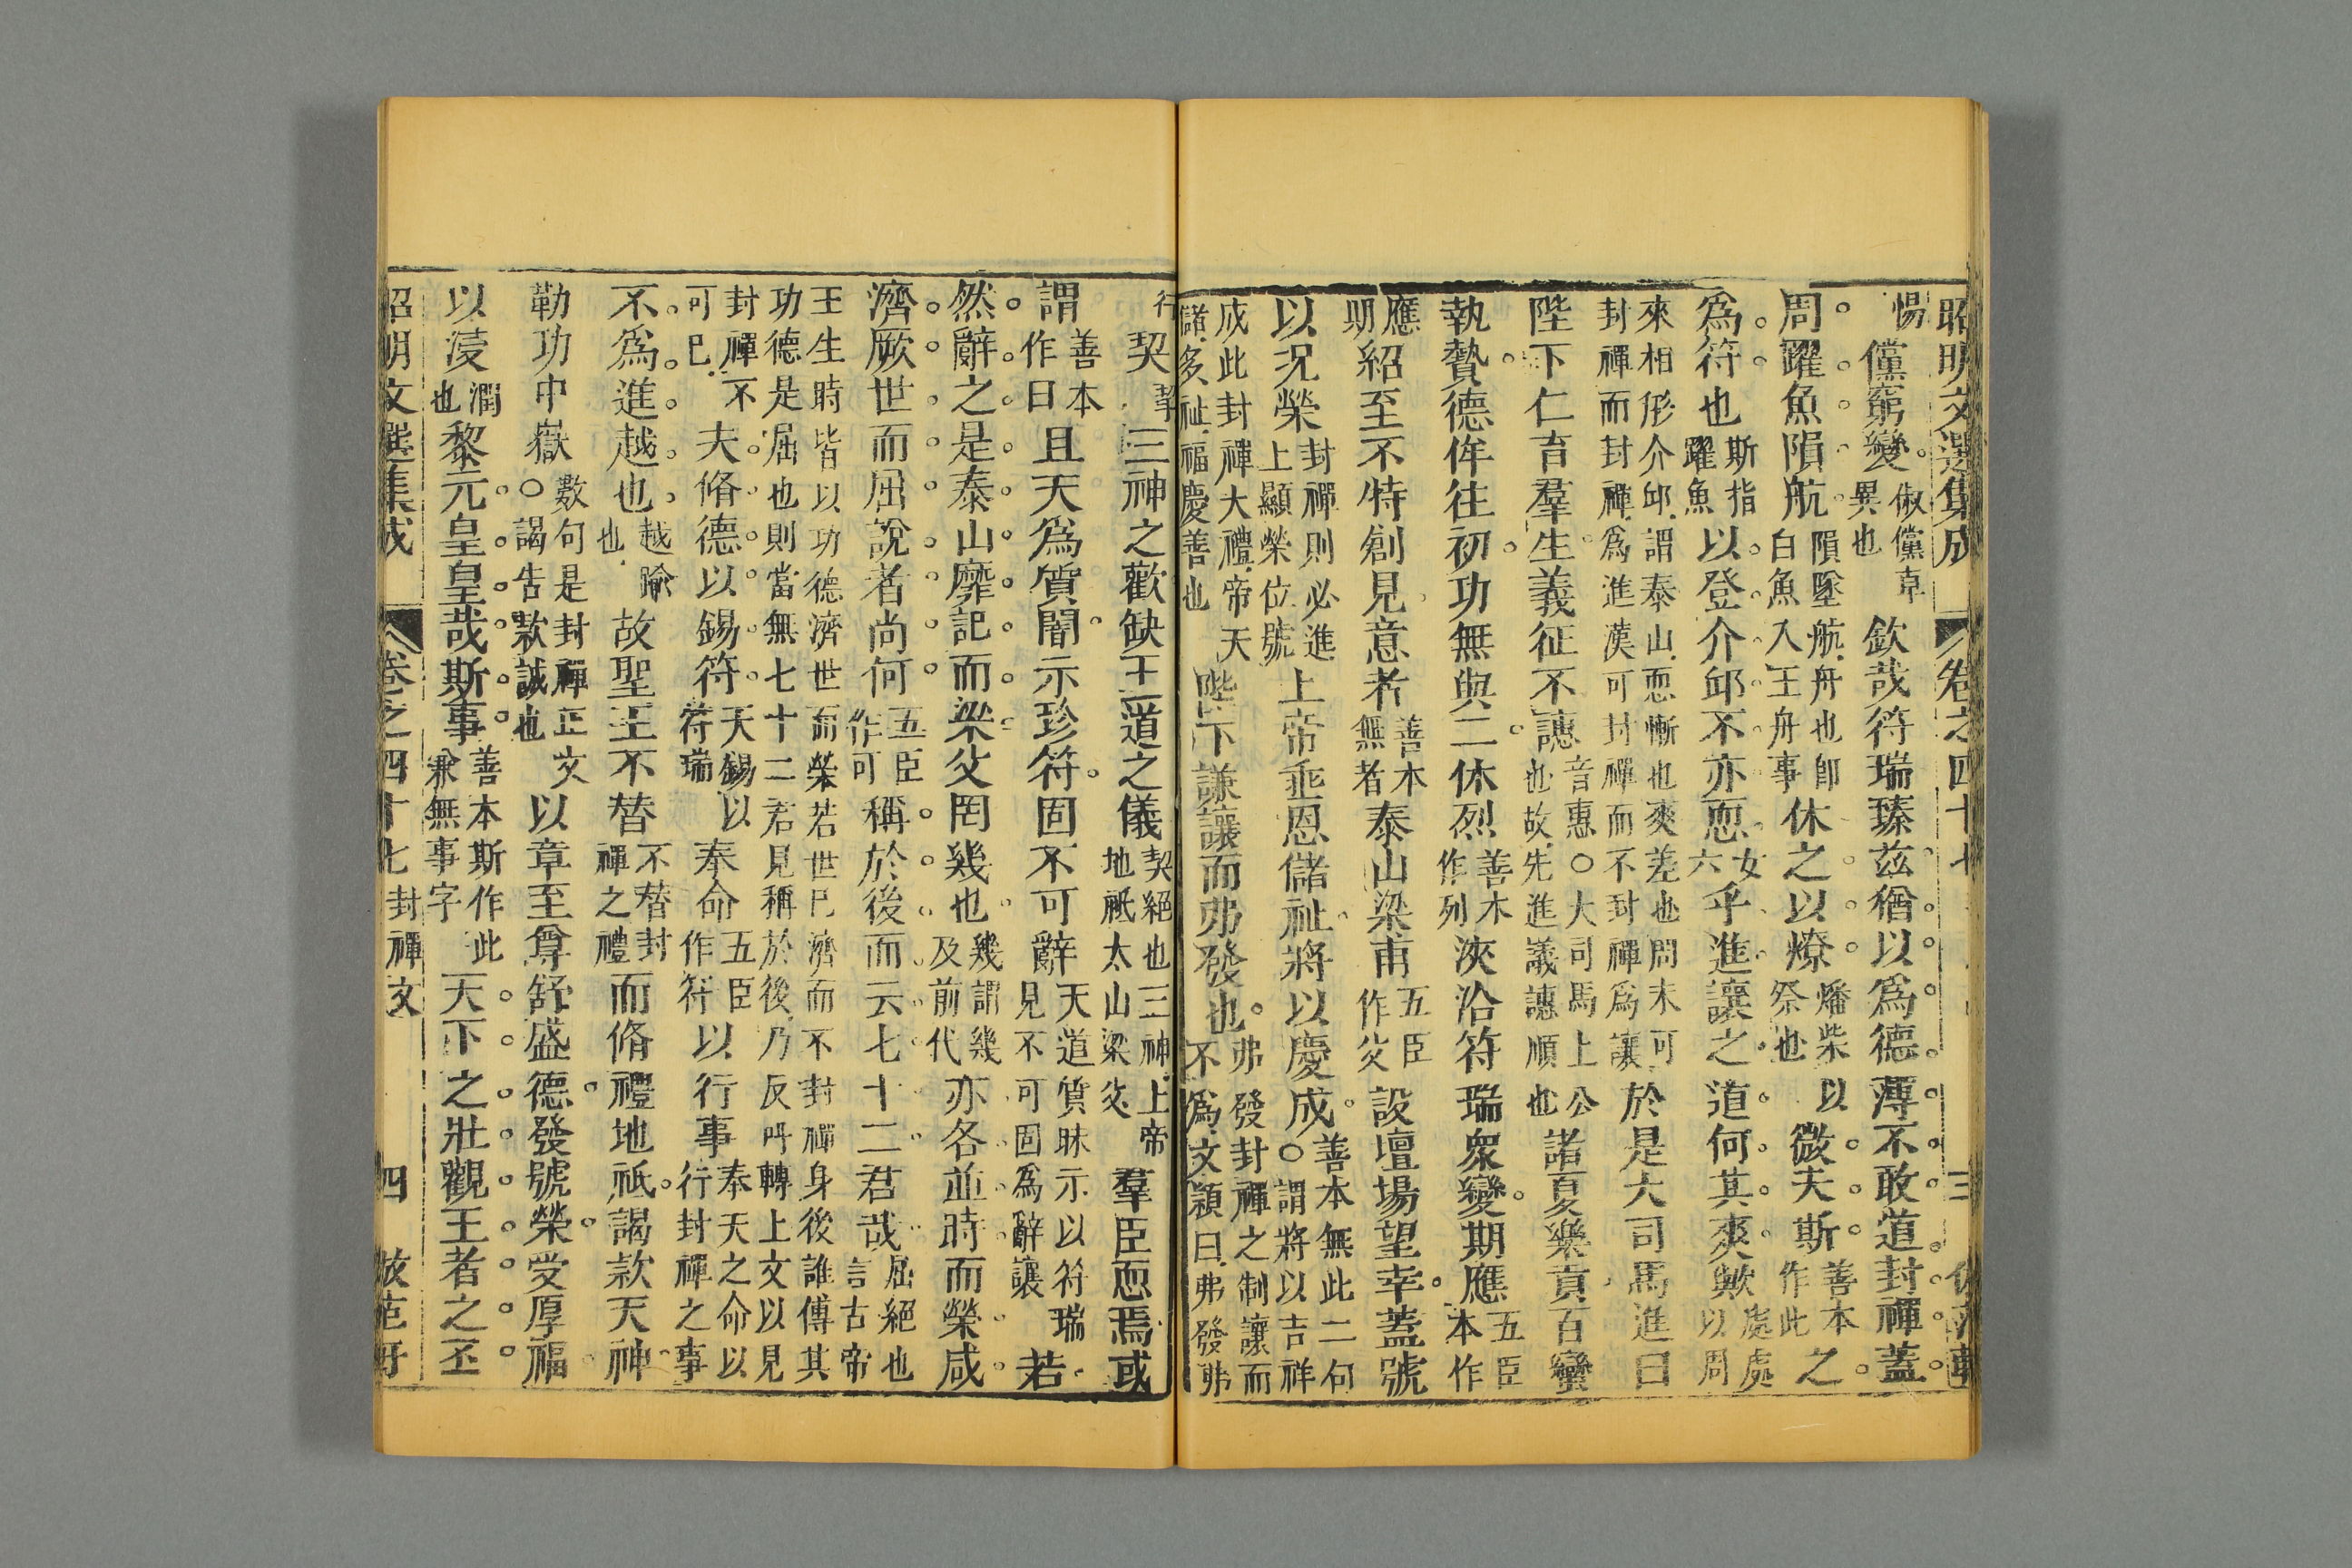 昭明文選集成 卷之四十七 三
惕 儻窮變 俶儻卓異也 欽哉符瑞臻茲猶以爲德薄不敢道封禪蓋
周躍魚隕航 隕墜航舟也卽白魚入王舟事 休之以燎 燔柴祭也 以微夫斯 善本作此 之
爲符也 斯指躍魚 以登介邱不亦恧 女六 乎進讓之道何其爽歟 處處以周
來相形介邱謂泰山恧慚也爽差也問未可封禪而封禪爲進漢可封禪而不封禪爲讓 於是大司馬進曰
陛下仁育羣生義征不譓 音惠○大司馬上公也故先進議譓順也 諸夏樂貢百蠻
執贄德侔往初功無與二休烈 善本作列 浹洽符瑞衆變期應 五臣本作
應期 紹至不特創見意者 善本無者 泰山梁甫 五臣作父 設壇場望幸蓋號
以況榮 封禪則必進上顯榮位號 上帝垂恩儲祉將以慶成 善本無此二句○謂將以吉祥
成此封禪大禮帝天儲多祉福慶善也 陛下謙讓而弗發也 弗發封禪之制讓而不爲文穎曰弗發弗
行 契 挈 三神之歡缺王道之儀 契絕也三神上帝地祇太山梁父 羣臣恧焉或
謂 善本作曰 且天爲質闇示珍符固不可辭 天道質昧示以符瑞見不可固爲辭讓 若
然辭之是泰山靡記而梁父罔幾也 幾謂幾及前代 亦各並時而榮咸
濟厥世而屈說者尚何 五臣作可 稱於後而云七十二君哉 屈絕也言古帝
王生時皆以功德濟世而榮若世已濟而不封禪身後誰傳其功德是屈也則當無七十二君見稱於後乃反叫轉上文以見
封禪不可已 夫脩德以錫符 天錫以符瑞 奉命 五臣作符 以行事 奉天之命以行封禪之事
不爲進越也 越踰也 故聖王不替 不替封禪之禮 而脩禮地祇謁款天神
勒功中嶽 數句是封禪正文○謁告款誠也 以章至尊舒盛德發號榮受厚福
以浸 潤也 黎元皇皇哉斯事 善本斯作此兼無事字 天下之壯觀王者之丕
昭明文選集成 卷之四十七 封禪文 四